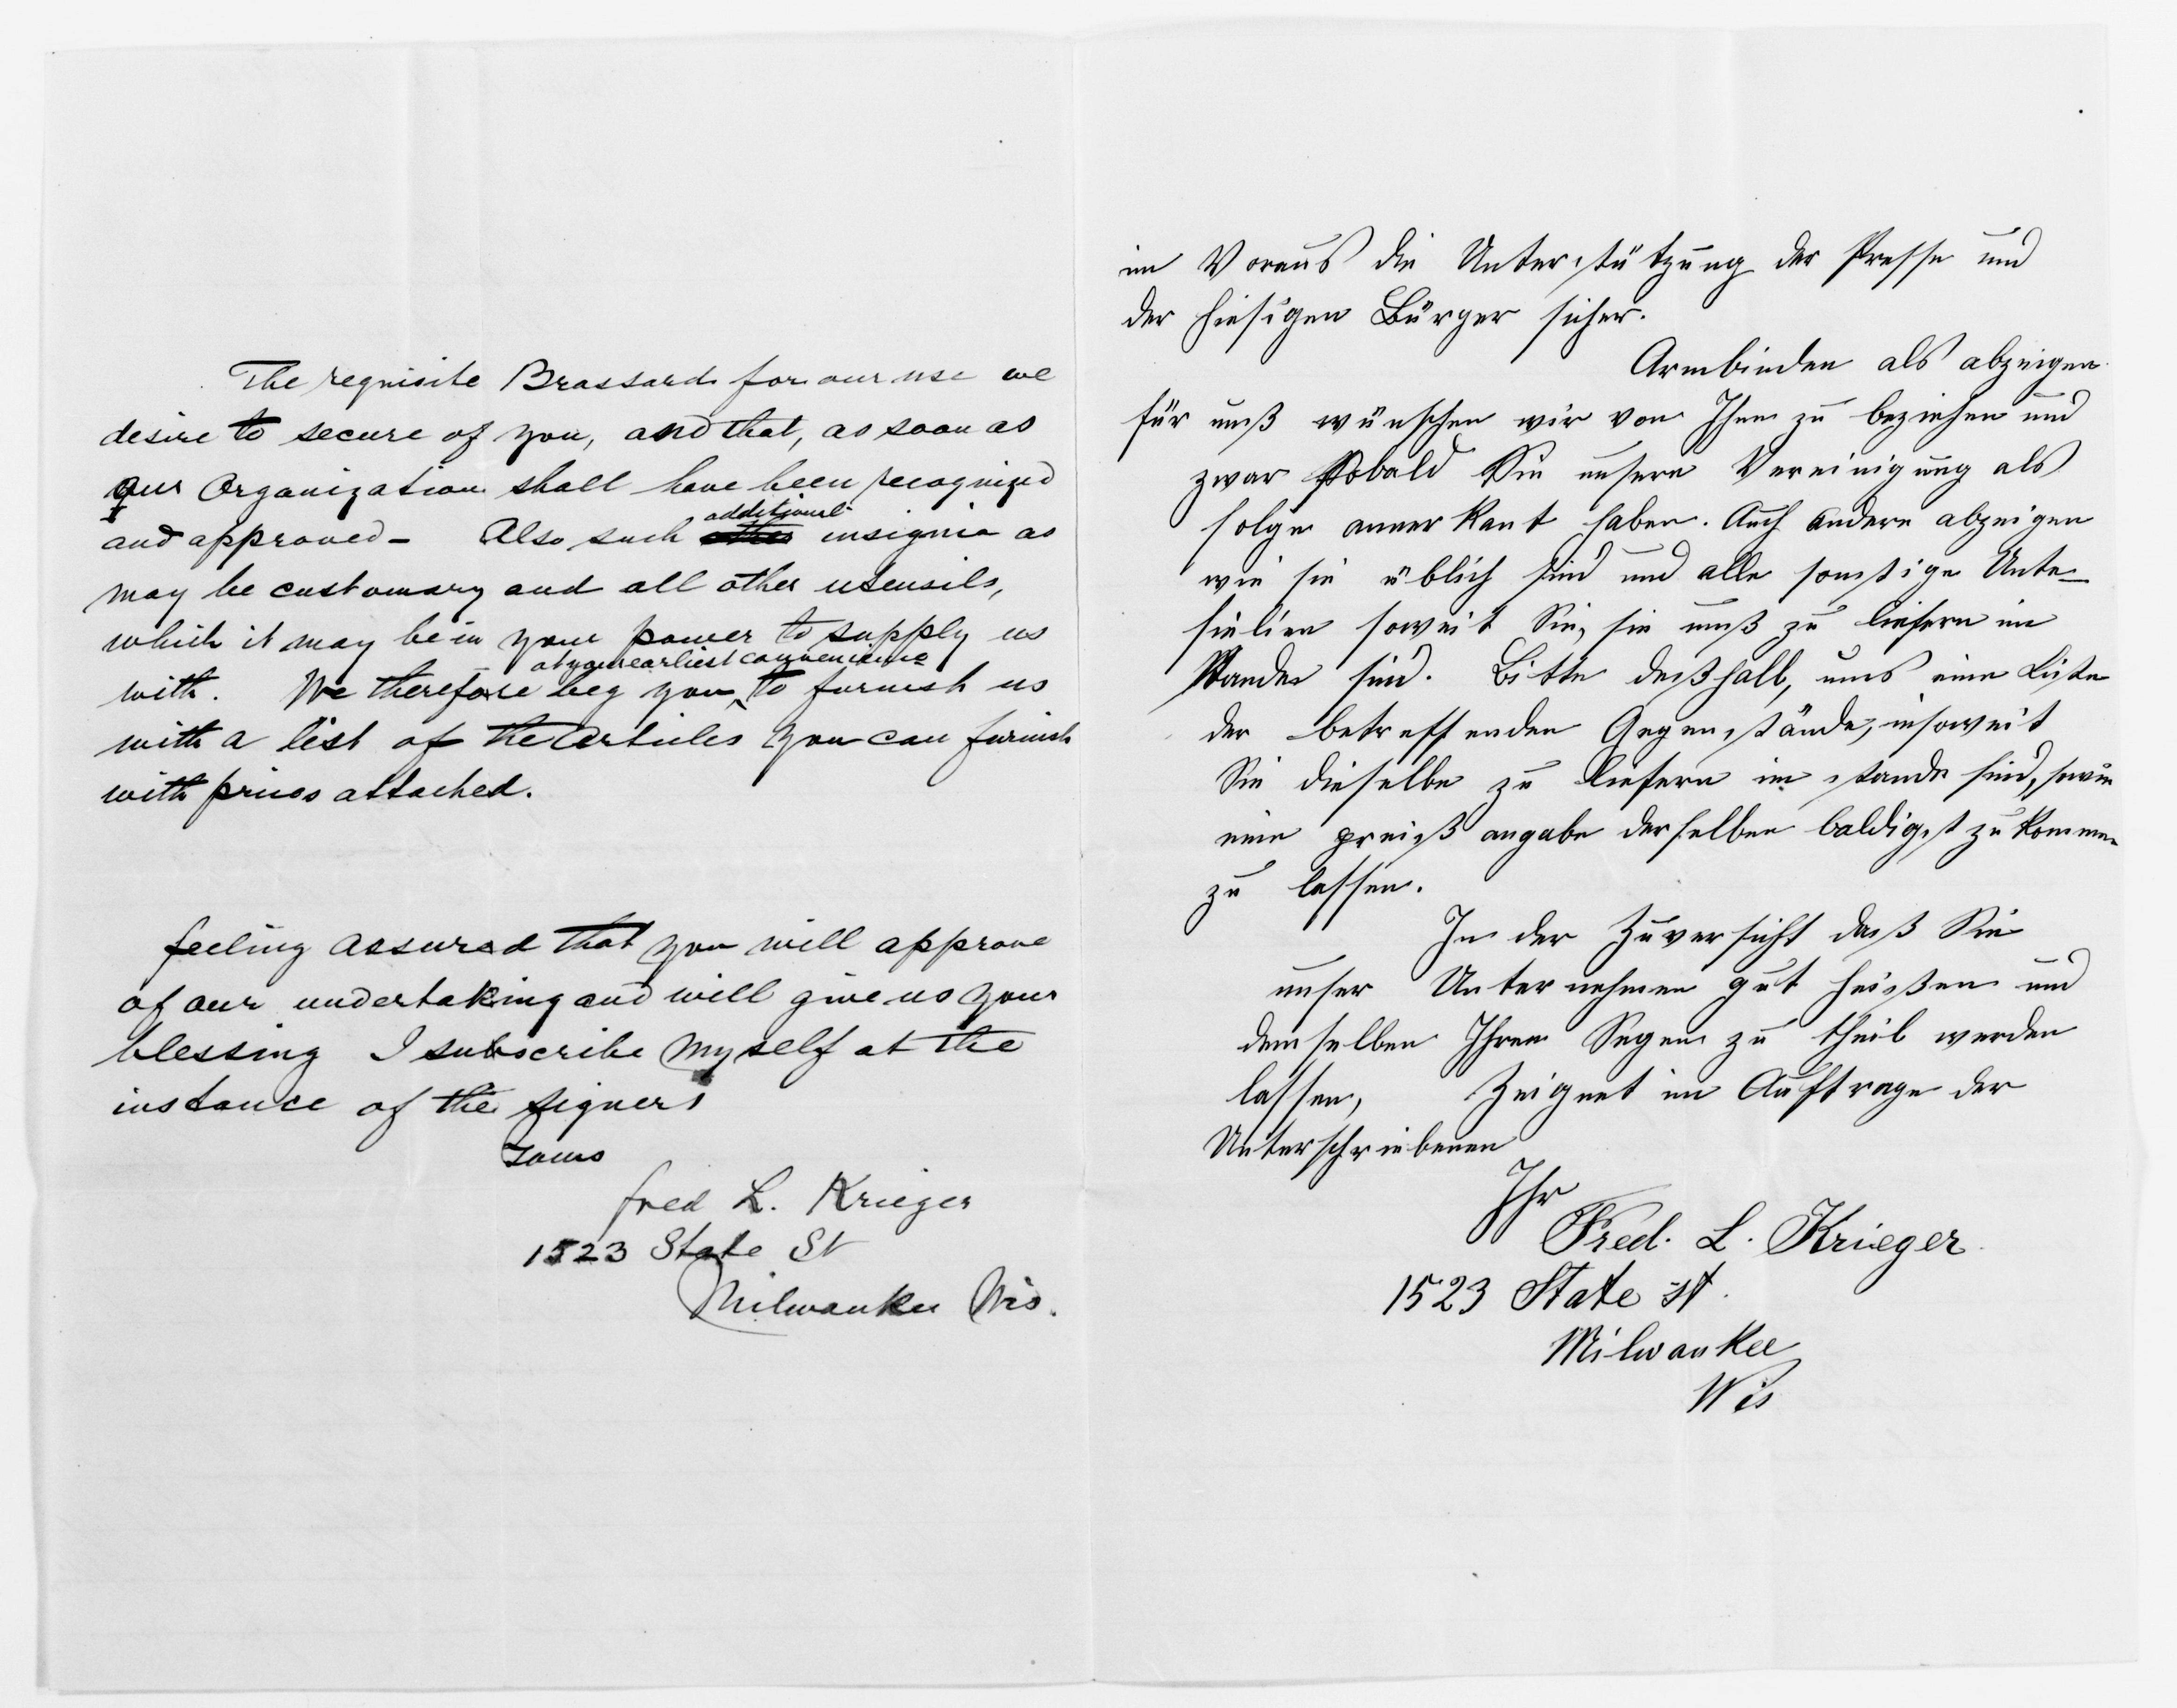 The requisite Brassards for our use we
desire to secure of you, and that, as soon as
our Organization shall have been recognized
and approved – Also such additional insignia as
may be customary and all other utensils,
which it may be in your power to supply us
with. We therefore beg you, at your earliest convenience to furnish us
with a list of the Articles you can furnish
with prices attached.
feeling assured that you will approve
of our undertaking and will give us your
blessing I subscribe myself at the
instance of the signers
Yours
Fred L. Krieger
1523 State St
Milwaukee Wis.
im Voraus die Unterstützung der Presse und
der hiesigen Bürger sicher.
Armbinden als abzeigen
für unß wünschen wir von Ihnen zu beziehen und
zwar sobald Sie unsere Vereinigung als
solge annerkant haben. Auch andere abzeigen
wie sie üblich sind und alle sonstige Uten-
sielien soweit Sie, sie unß zu liefern im
Stande sind. Bitte deßhalb, uns eine Liste
der betreffenden Gegenstände, insoweit
Sie dieselbe zu liefern im stande sind, sowie
eine preiß angabe derselben baldigst zu kommen
zu lassen.
In der Zuversicht daß Sie
unser Unternehmen gut heißen und
demselben Ihren Segen zu theil werden
lassen, Zeignet im Auftrage der
Unterschriebenen
Ihr
Fred. L. Krieger
1523 State st.
Milwaukee
Wis